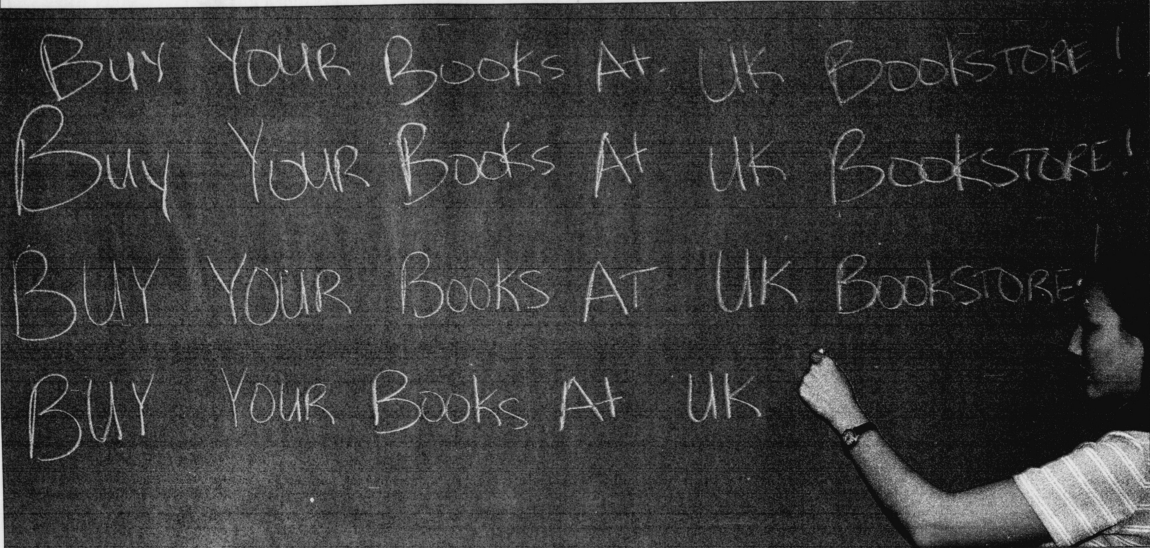 BUY YOUR BOOKS At UK BOOKSTORE!
Buy YOUR Books At UK BOOKSTORE!
BUY YOUR BOOKS AT UK BOOKSTORE!
BUY YOUR Books At UK